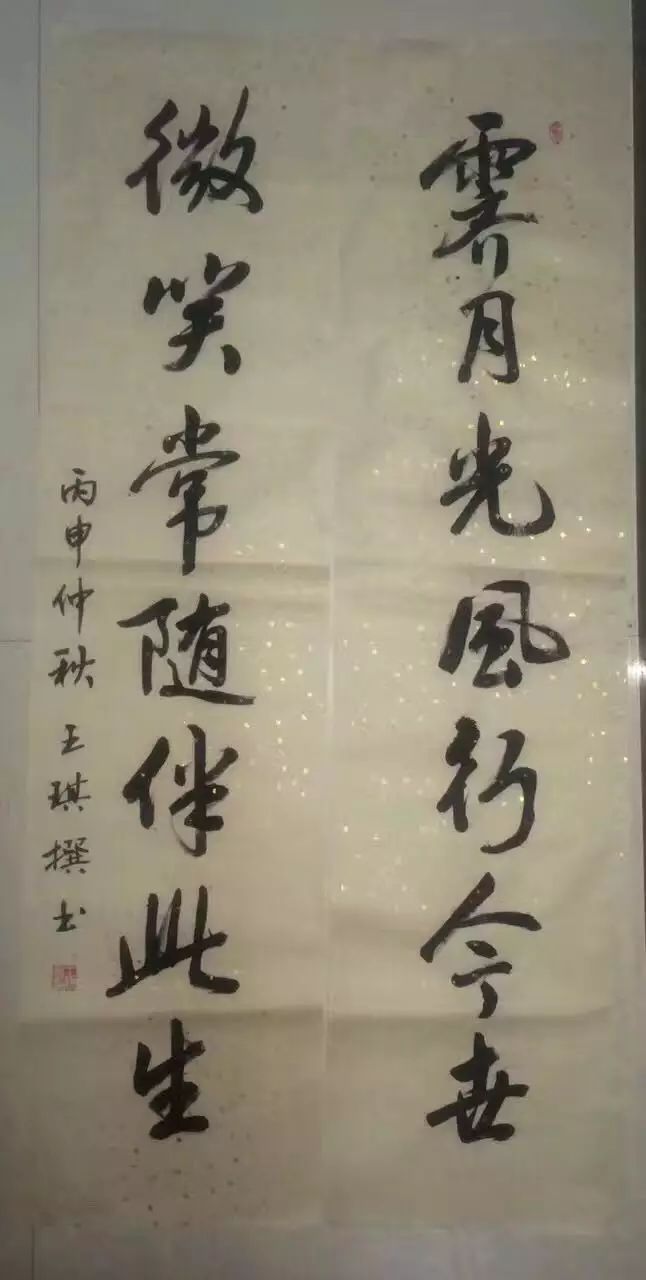 霽月光風行今世
微笑常随伴此生
丙申仲秋 王琪撰书